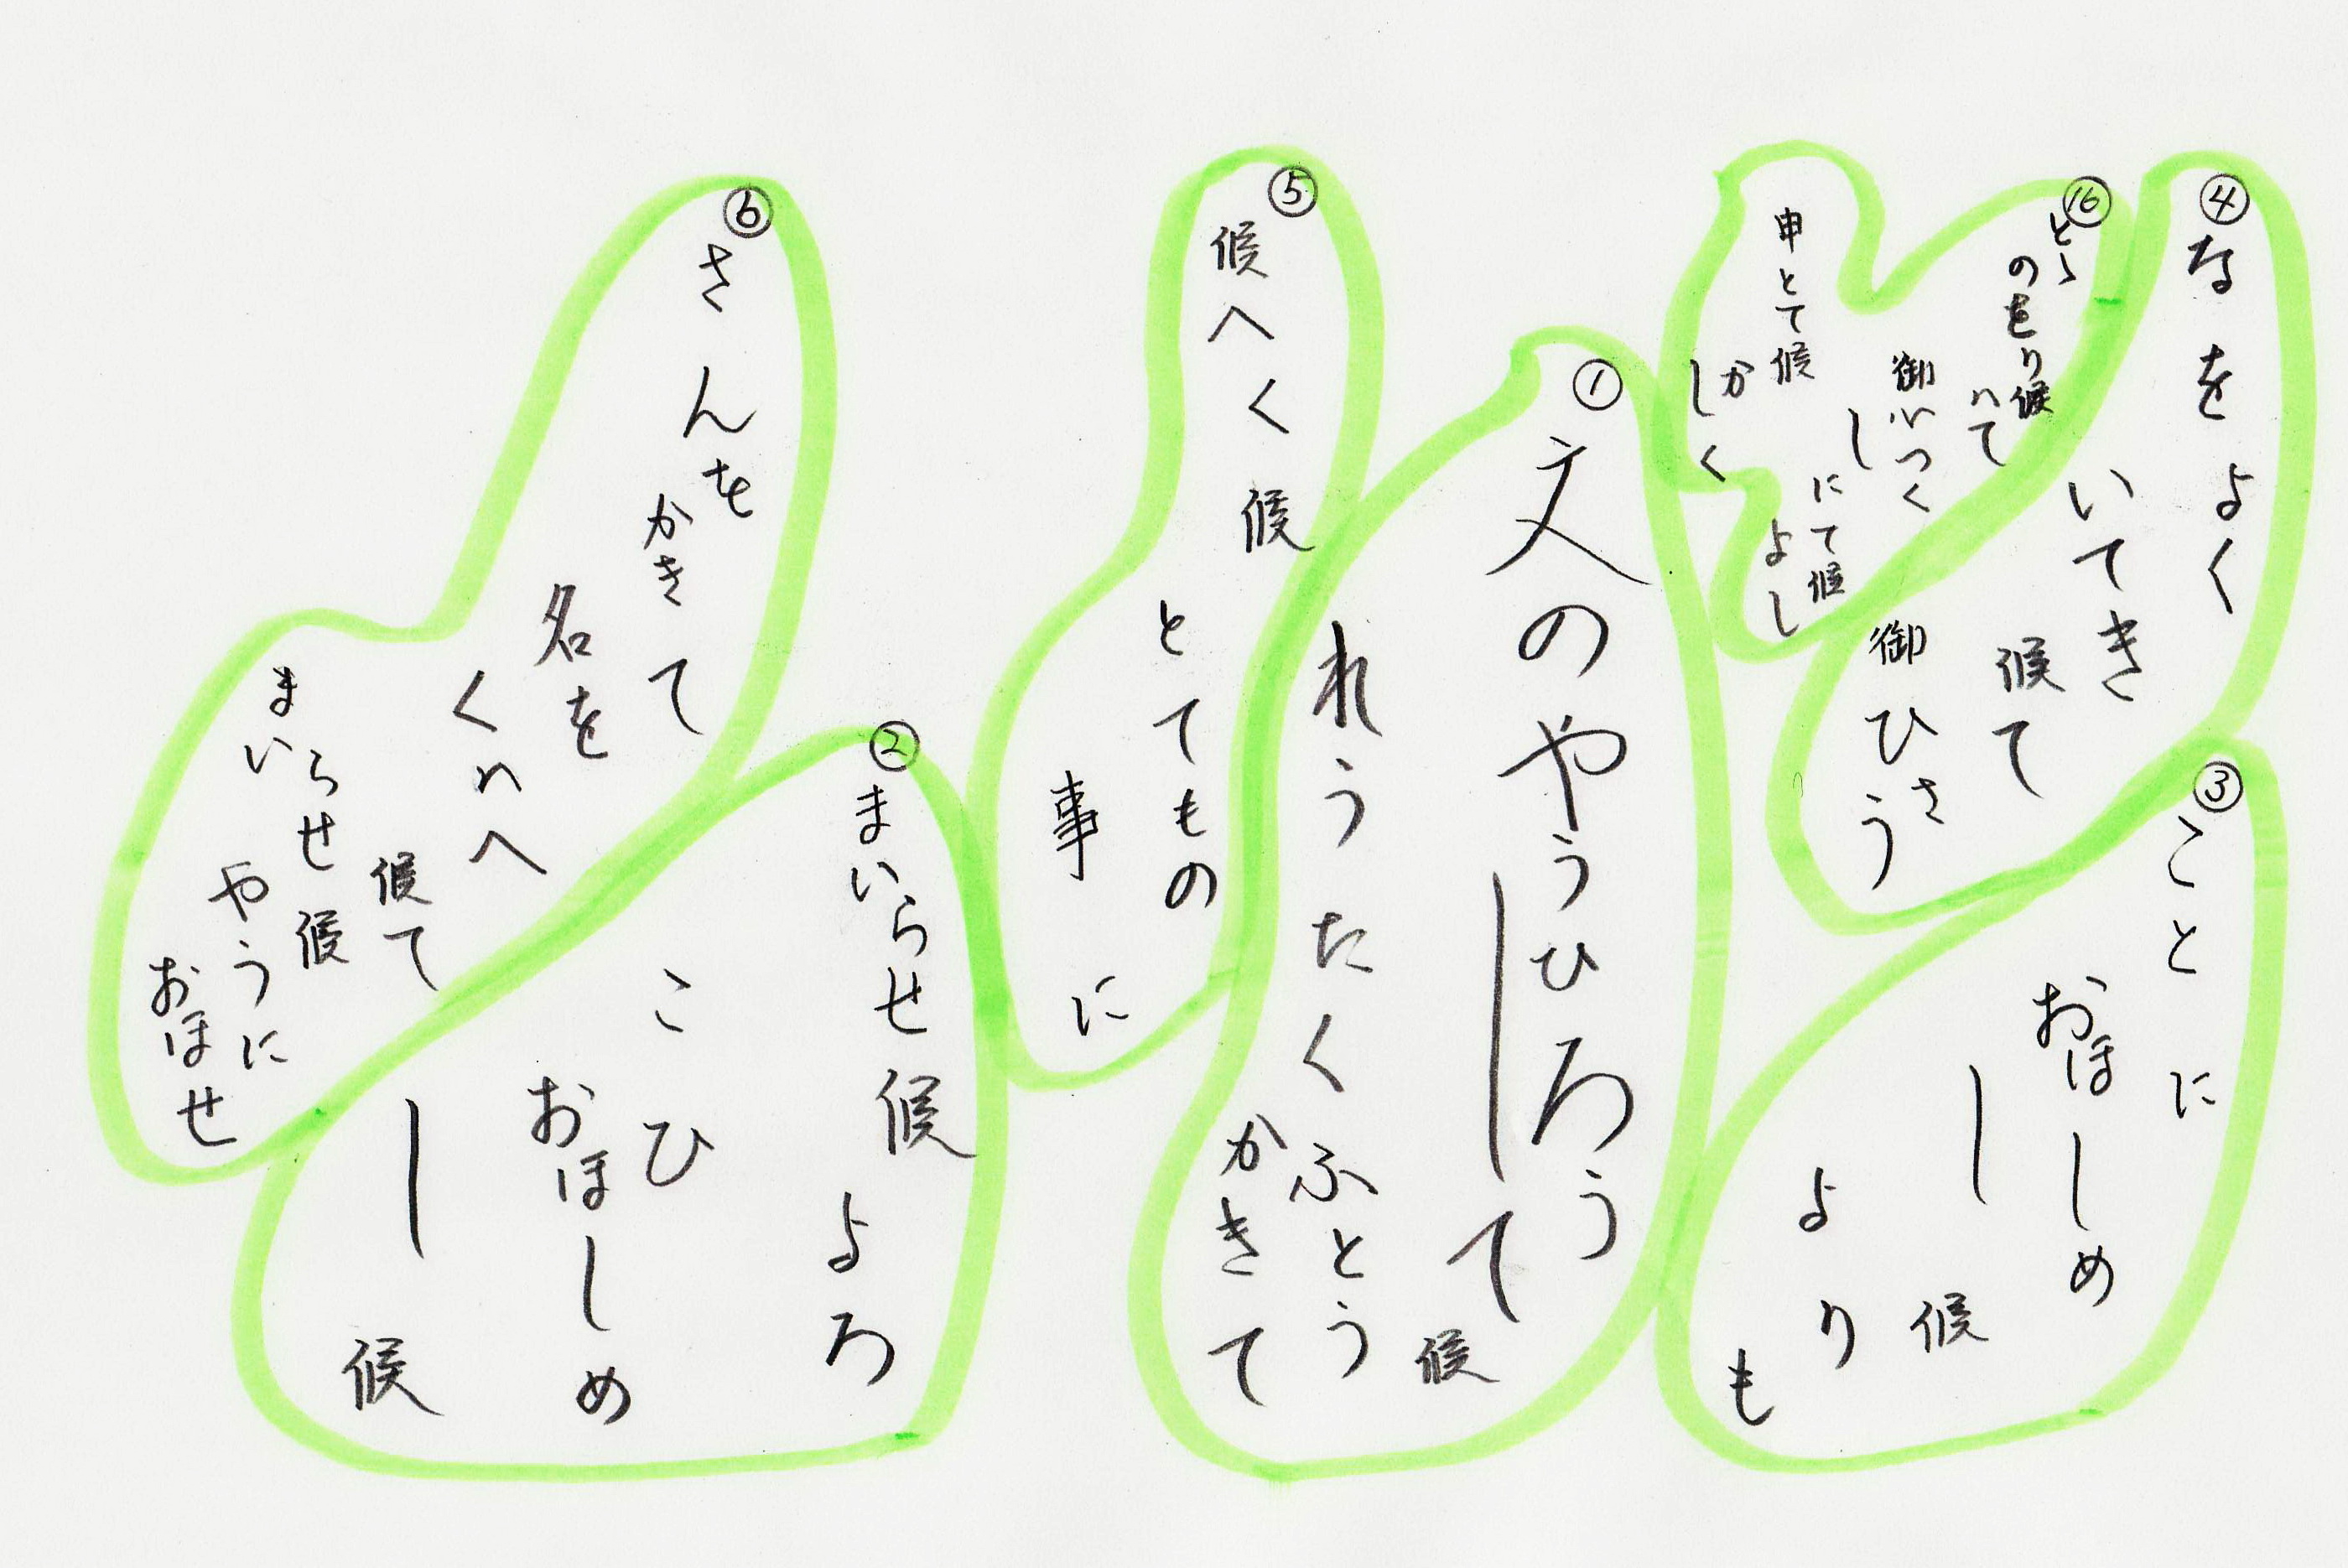 ①
文のやうひろう
して候
れうたくふとう
かきて
②
まいらせ候
よろ
こひ
おほしめ
し候
③
ことに
おほしめ
し候
より
も
④
なをよく
いてき
候て
御ひさう
⑤
候へく候
とてもの
事に
⑥
さんを
かきて
名を
くハへ
候て
まいらせ候
やうに
おほせ
⑯
とら
のをり候
ハて
御心つく
し
にて候
よし
申とて候
かしく